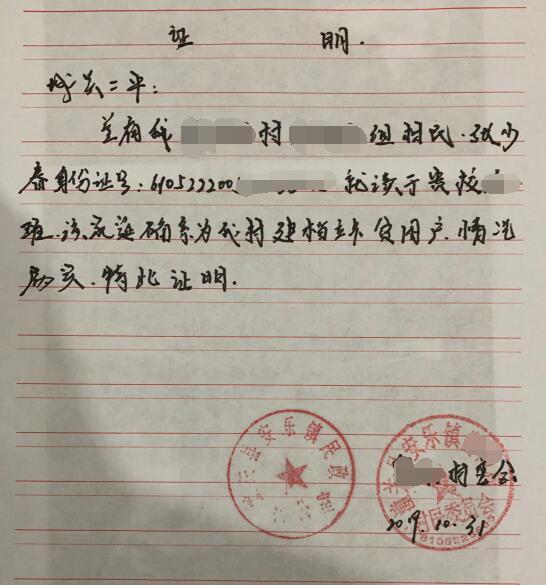 证 明.
城关二中:
兹有我 村 组村民.张少
春身份证号:610522200 就读于贵校
班.该家庭确系为我村建档立卡贫困户.情况
属实.特此证明.
县安乐镇民政
安乐镇
村委会
村民委员会
2019.10.31